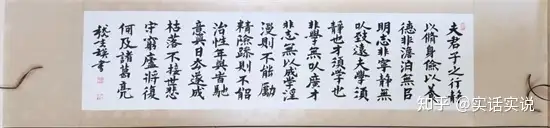 夫君子之行靜
以脩身儉以养
德非澹泊無㠯
明志非寧靜無
以致遠夫學須
靜也才須學也
非學無以廣才
非志無以成學淫
漫則不能勵
精險躁則不能
治性年與時馳
意與日去遂成
枯落不接世悲
守窮廬將復
何及諸葛亮
書
知乎 @实话实说